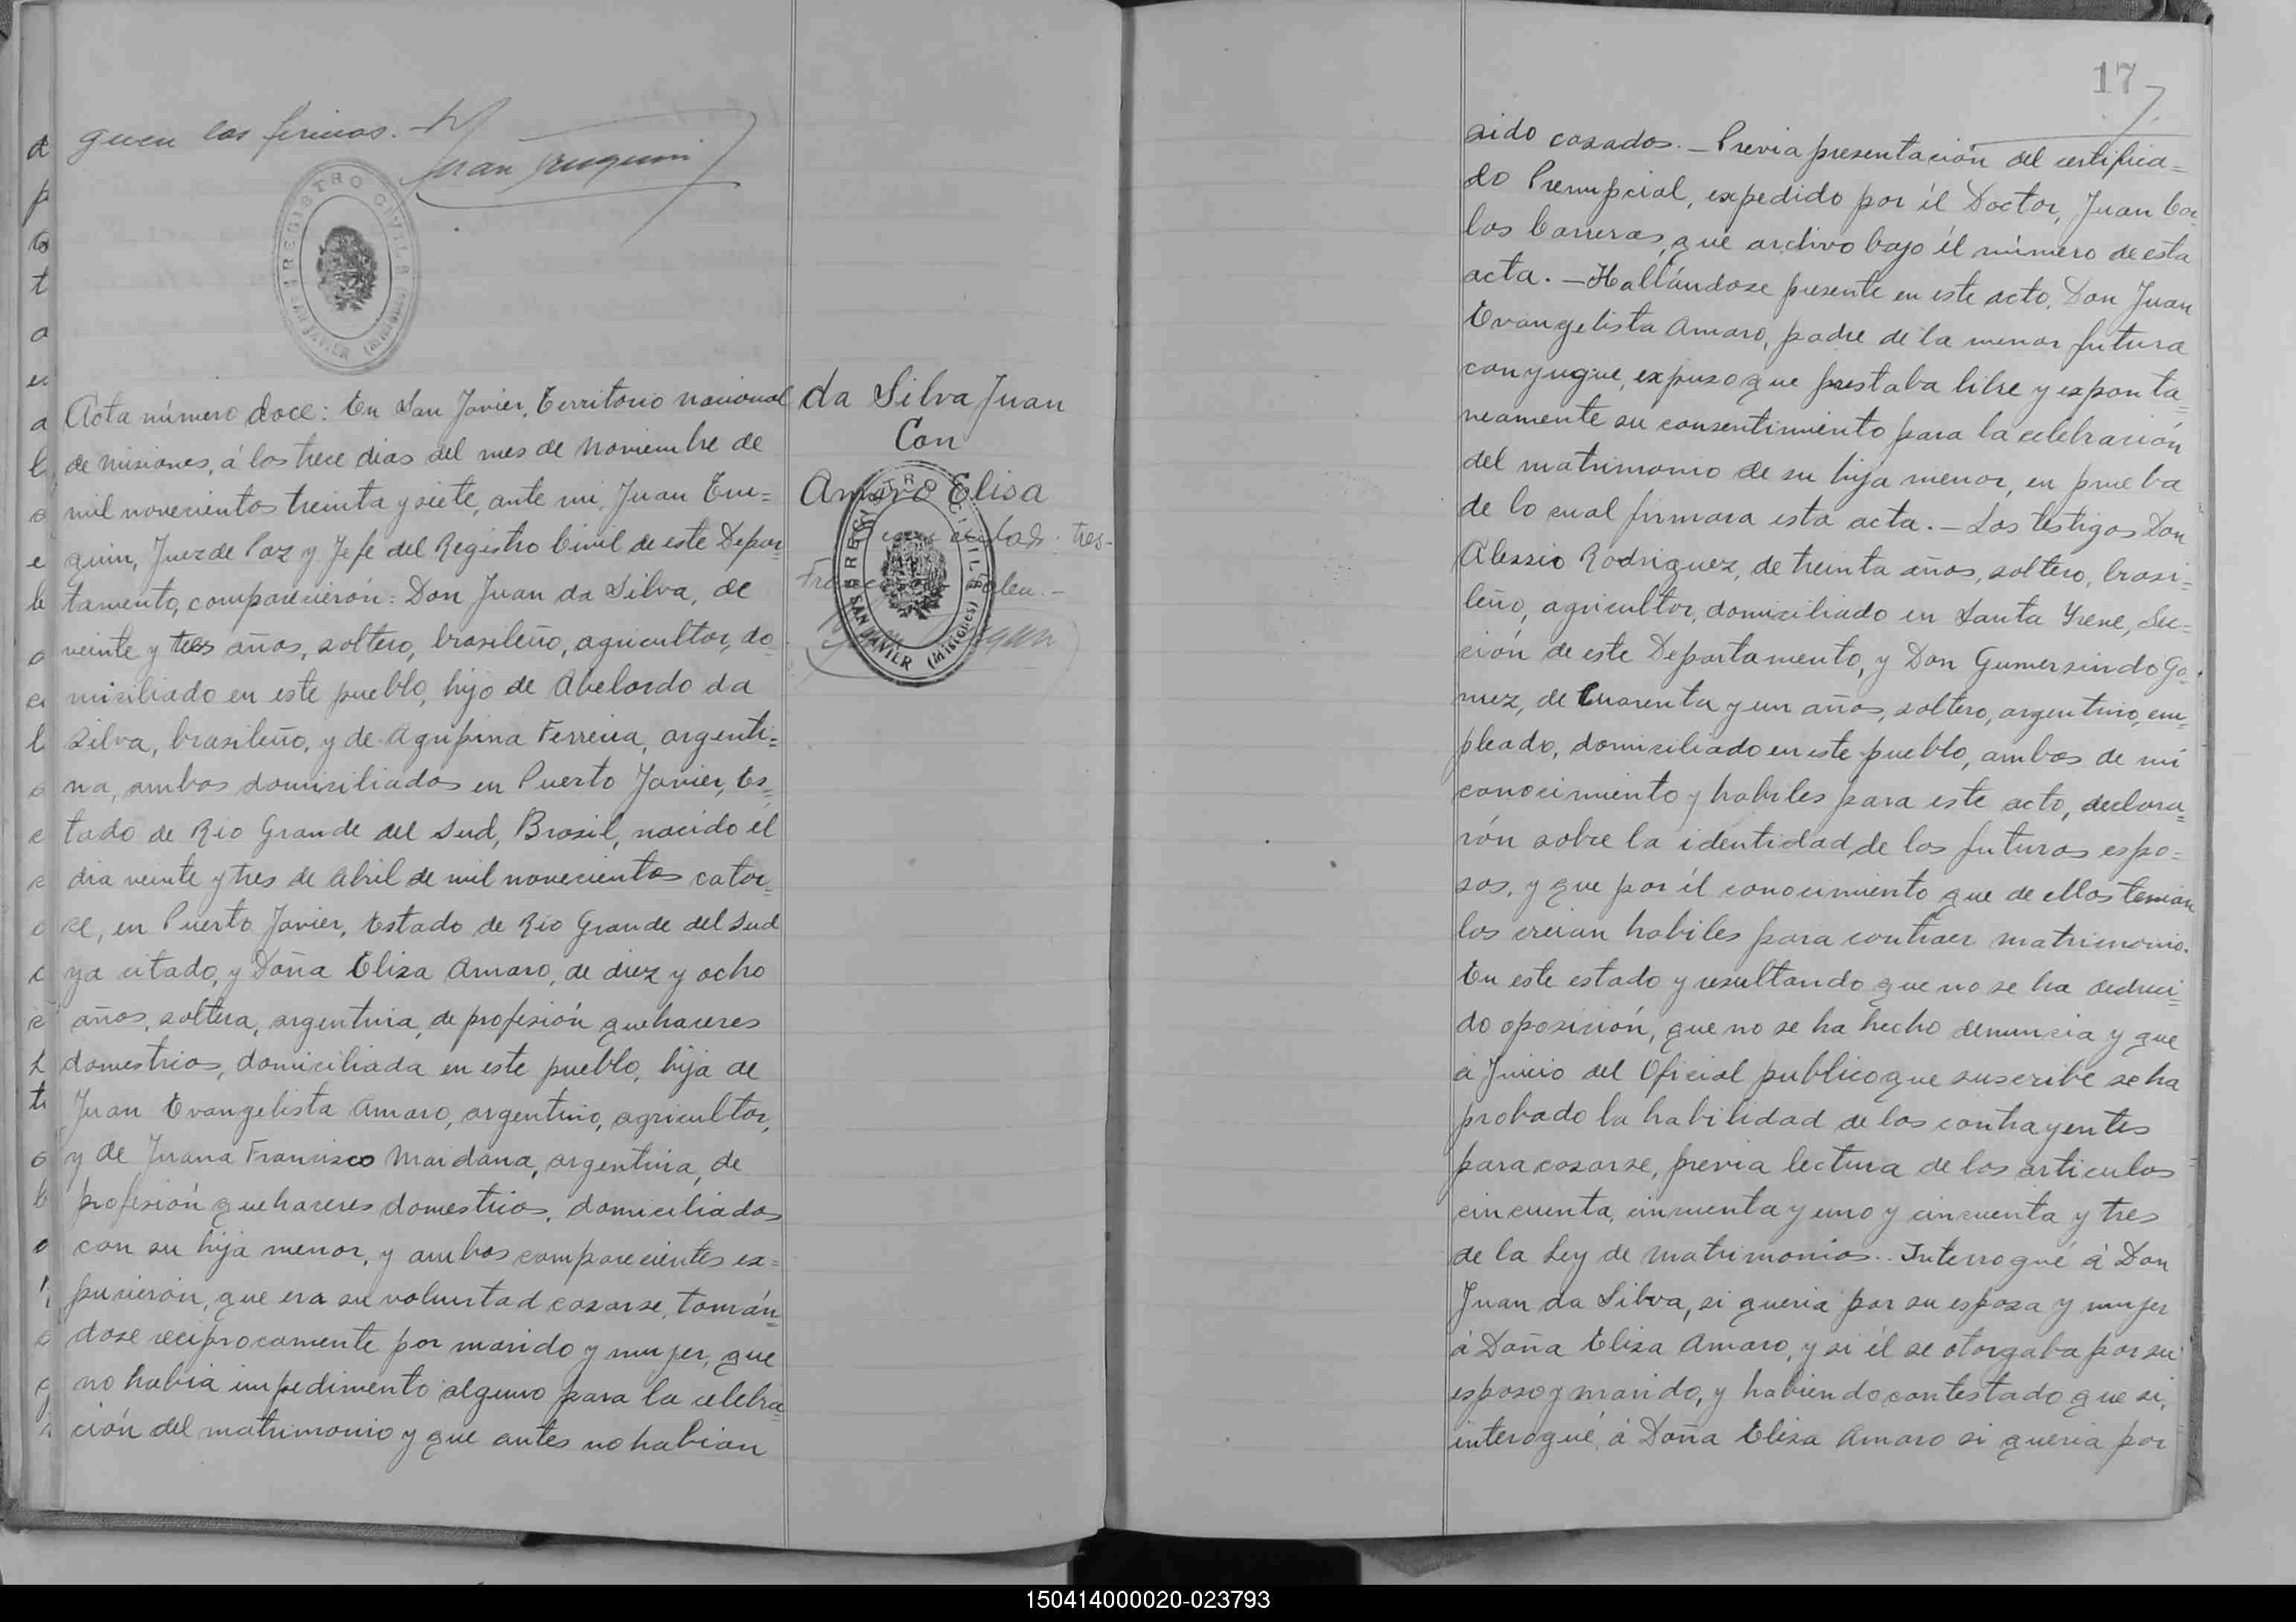 guen las firmas.
REGISTRO CIVIL
SAN JAVIER (Misiones)
Acta número doce: En San Javier, Territorio nacional
de Misiones, á los trece dias del mes de Noviembre de
mil novecientos treinta y siete, ante mi, Juan Em=
quin, Juez de Paz y Jefe del Registro Civil de este Depar=
tamento, comparecierón: Don Juan da Silva, de
veinte y tres años, soltero, brasileño, agricultor, do
misiliado en este pueblo, hijo de Abelardo da
Silva, brasileño, y de Agripina Ferreira, argenti=
na, ambos domisiliados en Puerto Javier, Es=
tado de Rio Grande del Sud, Brasil, nacido el
dia veinte y tres de Abril de mil novecientos cator=
ce, en Puerto Javier, Estado de Rio Grande del Sud
ya citado, y Doña Elisa Amaro, de diez y ocho
años, soltera, argentina, de profesión quehaceres
domestricos, domiciliada en este pueblo, hija de
Juan Evangelista Amaro, argentino, agricultor,
y de Juana Francisco Maidana, argentina, de
profesión quehaceres domestricos, domiciliados
con su hija menor, y ambos comparecientes ex=
pusierón, que era su voluntad casarse, tomán=
dose reciprocamente por marido y mujer, que
no habia impedimento alguno para la celebra=
ción del matrimonio y que antes no habian
da Silva Juan
Con
Amaro Elisa
tres-
REGISTRO CIVIL
SAN JAVIER (Misiones)
17
sido casados. — Previa presentación del certifica=
do Prenupcial, expedido por él Doctor, Juan Car
los Carreras, que archivo bajo él número de esta
acta. — Hallándose presente en este acto, Don Juan
Evangelista Amaro, padre de la menor futura
conyugue, expuso que prestaba libre y exponta=
neamente su consentimiento para la celebración
del matrimonio de su hija menor, en prueba
de lo cual firmara esta acta. — Los testigos Don
Alessio Rodriguez, de treinta años, soltero, brasi=
leño, agricultor, domisiliado en Santa Yrene, Sec=
ción de este Departamento, y Don Gumersindo Go
mez, de Cuarenta y un años, soltero, argentino, em=
pleado, domisiliado en este pueblo, ambos de mi
conocimiento y habiles para este acto, declara=
rón sobre la identidad de los futuros espo=
sos, y que por él conocimiento que de ellos tenian
los creian habiles para contraer matrimonio.
En este estado y resultando que no se ha deduci=
do oposición, que no se ha hecho denuncia y que
á Juicio del Oficial publico que suscribe se ha
probado la habilidad de los contrayentes
para casarse, previa lectura de los articulos
cincuenta, cincuenta y uno y cincuenta y tres
de la Ley de Matrimonios.. Interrogué á Don
Juan da Silva, si queria por su esposa y mujer
á Doña Elisa Amaro, y si él se otorgaba por su
esposo y marido, y habiendo contestado que si,
interogué, á Doña Elisa Amaro si queria por
150414000020-023793